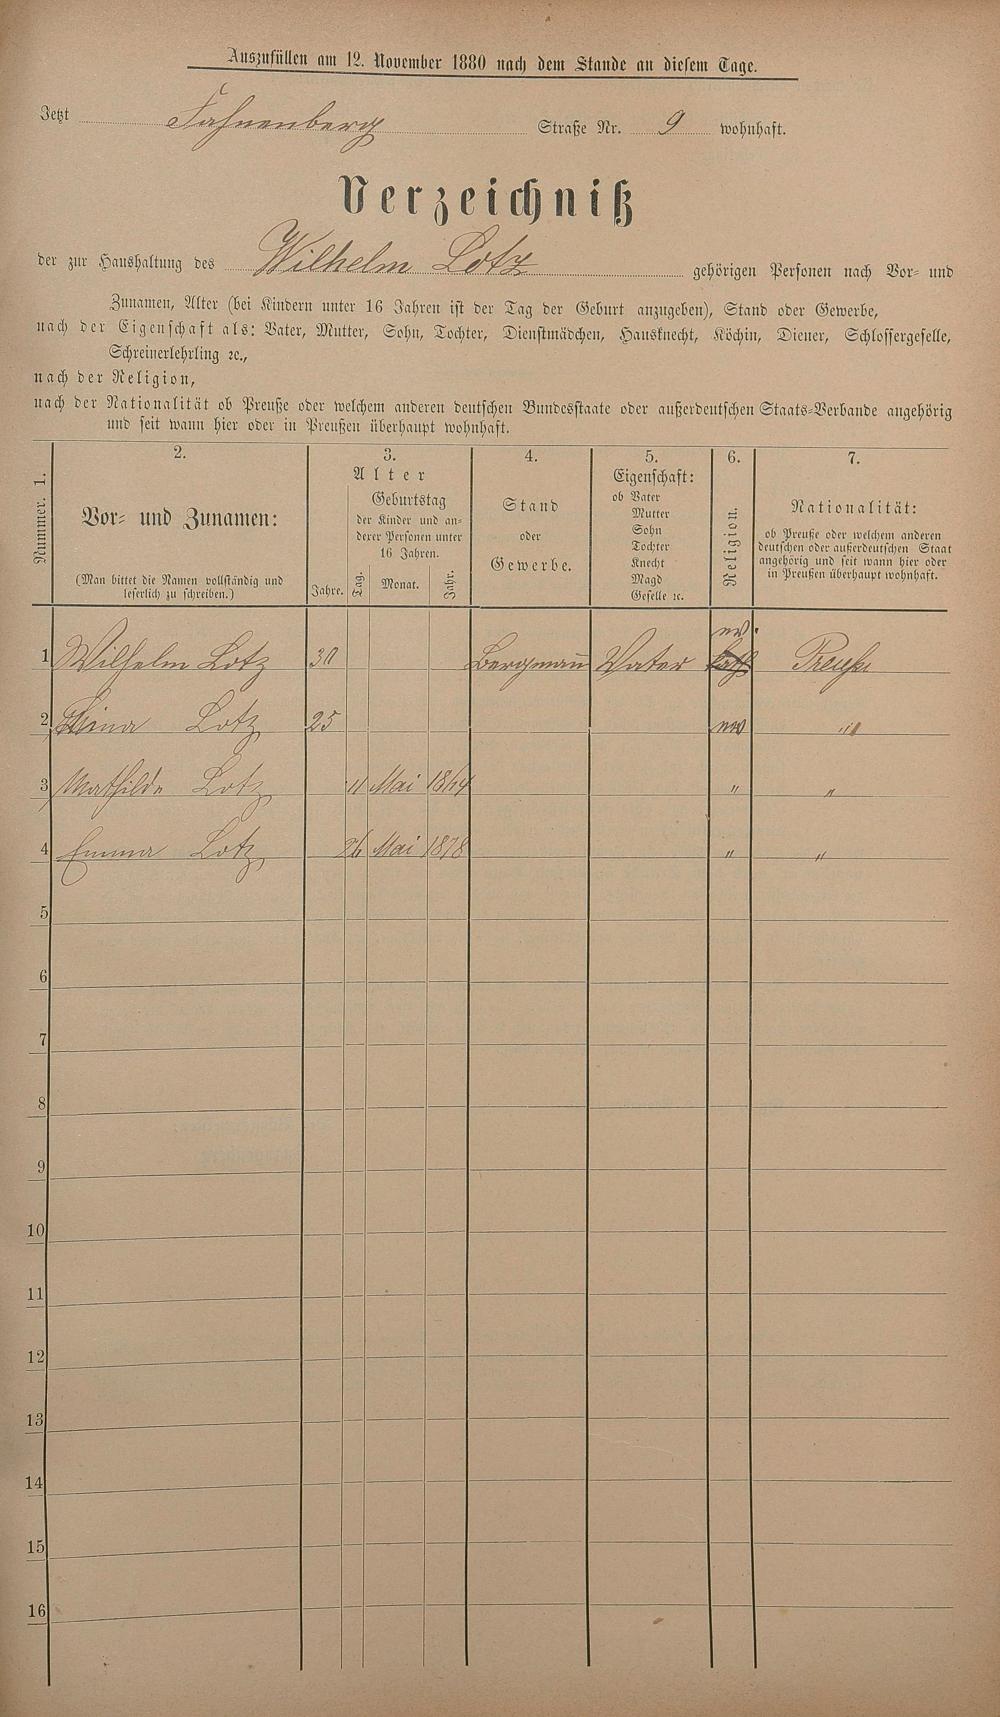 Auszufüllen am 12. November 1880 nach dem Stande an diesem Tage.
Jetzt Fahnenberg Straße Nr. 9 wohnhaft.
Verzeichniß
der zur Haushaltung des Wilhelm Lotz gehörigen Personen nach Vor- und
Zunamen, Alter (bei Kindern unter 16 Jahren ist der Tag der Geburt anzugeben), Stand oder Gewerbe,
nach der Eigenschaft als: Vater, Mutter, Sohn, Tochter, Dienstmädchen, Hausknecht, Köchin, Diener, Schlossergeselle,
Schreinerlehrling ꝛc.,
nach der Religion,
nach der Nationalität ob Preuße oder welchem anderen deutschen Bundesstaate oder außerdeutschen Staats-Verbande angehörig
und seit wann hier oder in Preußen überhaupt wohnhaft.
Nummer. 1.
2.
Vor- und Zunamen:
(Man bittet die Namen vollständig und
leserlich zu schreiben.)
3.
Alter
Jahre.
Geburtstag
der Kinder und an-
derer Personen unter
16 Jahren.
Tag. Monat. Jahr.
4.
Stand
oder
Gewerbe.
5.
Eigenschaft:
ob Vater
Mutter
Sohn
Tochter
Knecht
Magd
Geselle ꝛc.
6.
Religion.
7.
Nationalität:
ob Preuße oder welchem anderen
deutschen oder außerdeutschen Staat
angehörig und seit wann hier oder
in Preußen überhaupt wohnhaft.
ev.
1 Wilhelm Lotz 30 Bergmann Vater kath Preuße
2 Lotz 25 ev "
3 Mathilde Lotz 11 Mai " "
4 Emma Lotz 26 Mai 1878 " "
5
6
7
8
9
10
11
12
13
14
15
16